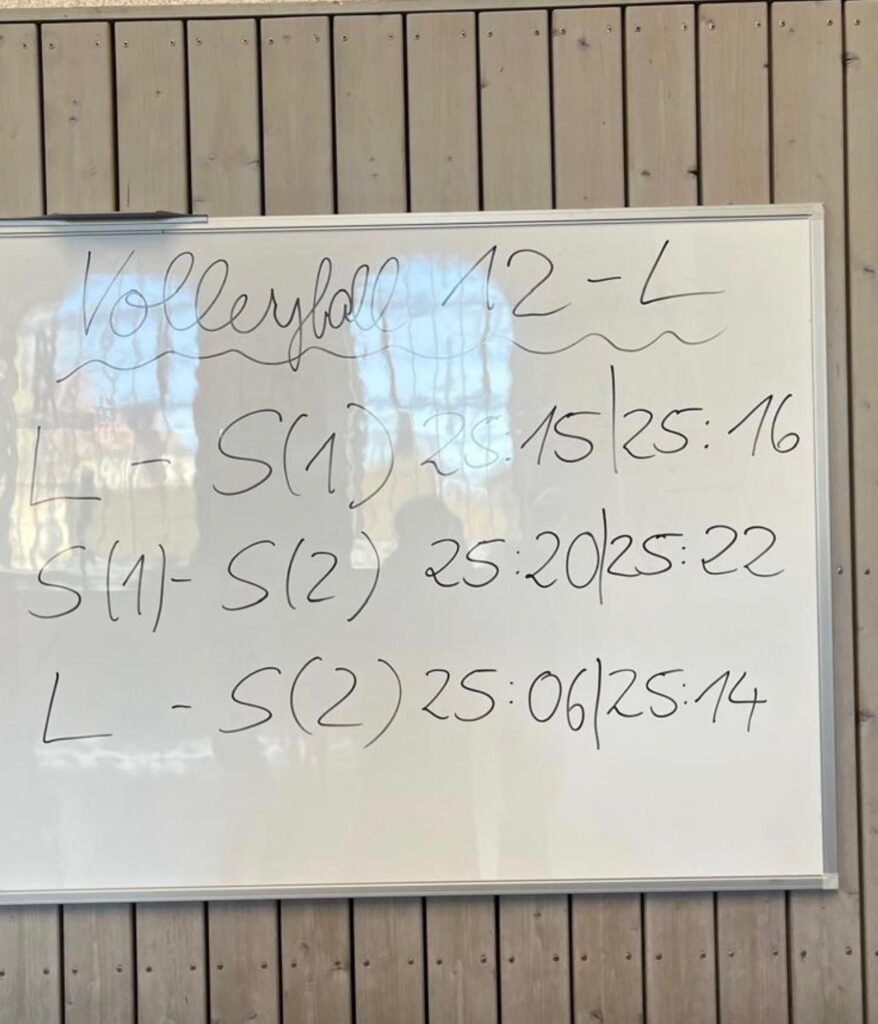 Volleyball 12-L
L - S(1) 25:15|25:16
S(1)- S(2) 25:20|25:22
L - S(2) 25:06|25:14